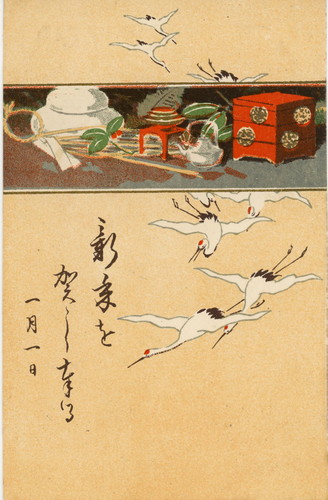 新年を
賀し奉る
一月一日